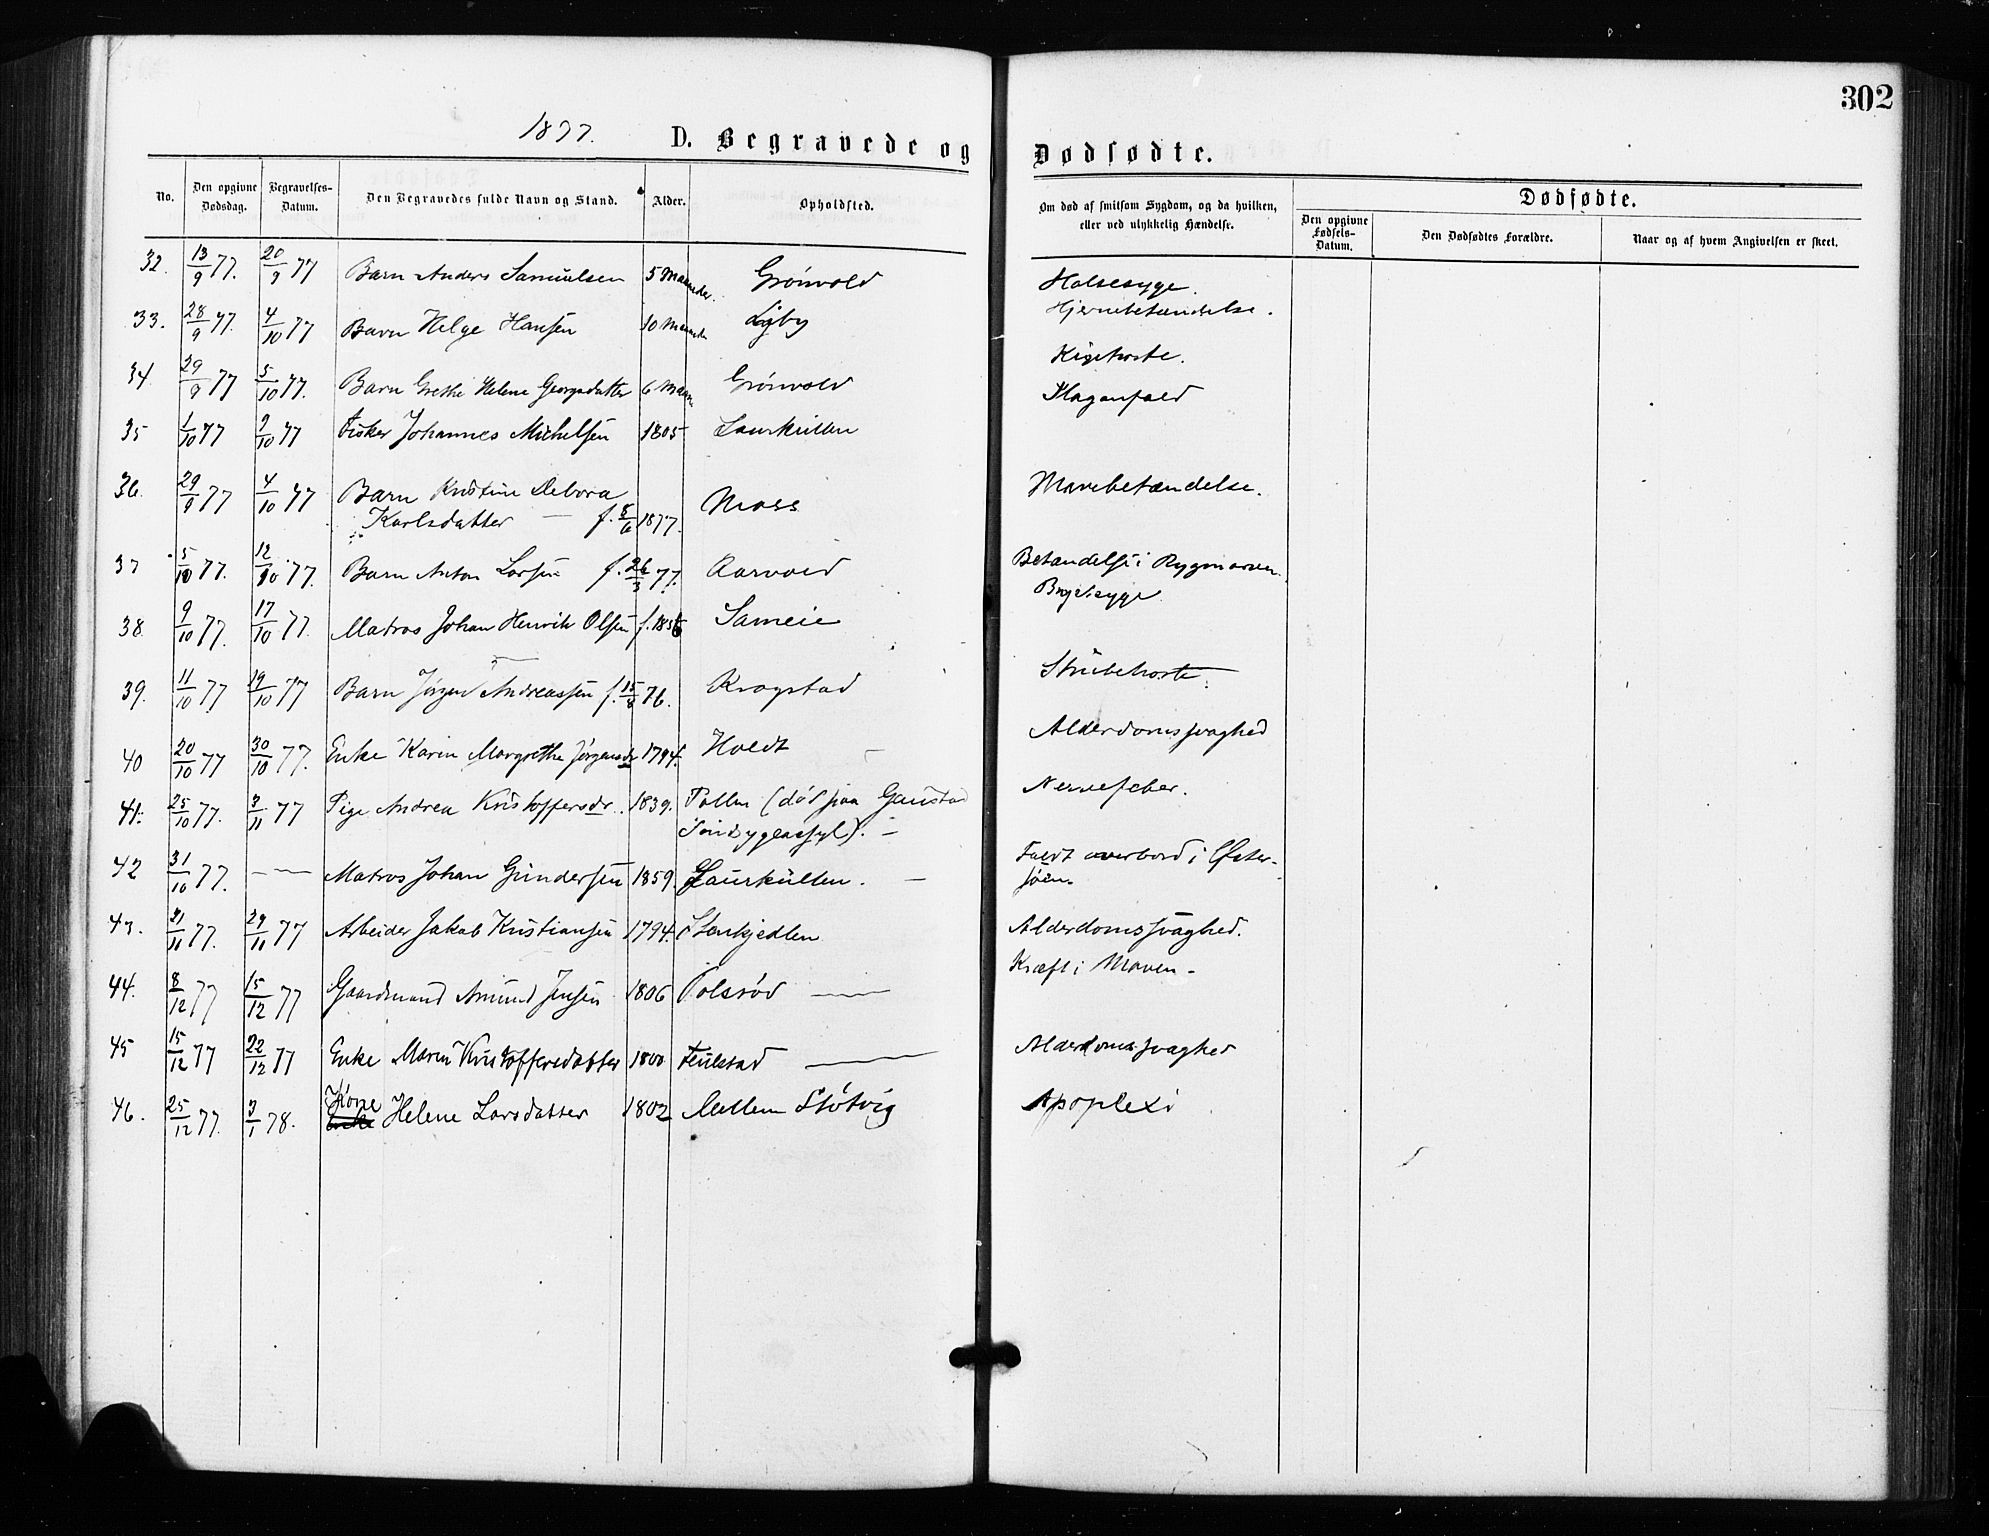 302
1877.
D. Begravede og Dødfødte.
No.
Den opgivne Dødsdag.
Begravelses-Datum.
Den Begravedes fulde Navn og Stand.
Alder.
Opholdsted.
Om død af smitsom Sygdom, og da hvilken, eller ved ulykkelig Hændelse.
Dødfødte.
Den opgivne Fødsels-Datum.
Den Dødfødtes Forældre.
Naar og af hvem Angivelsen er skeet.
32. 13/9 77. 20/9 77 Barn Anders Samuelsen 5 Maaneder. Grönvold Halsesyge.
33. 28/9 77. 4/10 77 Barn Helge Hansen 10 Maaneder Hjernebetændelse.
34 29/9 77 5/10 77. Barn Grethe Helene Georgsdatter 6 Maan. Grönvold Kigehoste.
35 1/10 77 9/10 77 Fisker Johannes Michelsen 1805 Laurkullen Slaganfald
36. 29/9 77 4/10 77 Barn Kristine Debora
Karlsdatter — f. 8/6 1877. Moss Mavebetændelse.
37 5/10 77. 12/10 77. Barn Anton Larsen f. 26/3 77. Aarvold Betændelse i Rygmarven.
38 9/10 77. 17/10 77. Matros Johan Henrik Olsen f. 1856 Sameie Brystsyge
39. 11/10 77. 19/10 77 Barn Jörgen Andreassen f. 15/8 76. Kragstad Strubehoste.
40 20/10 77 30/10 77. Enke Karen Margrethe Jörgensdr 1794. Holdt Alderdomssvaghed
41. 25/10 77. 3/11 77 Pige Andrea Kristoffersdr. 1839. Pollen (död paa Gaustad
Sindsygeasyl). — Nervefeber.
42 31/10 77. — Matros Johan Gundersen 1859. Laurkullen. — Faldt overbord i Öster-
söen.
43. 21/11 77. 29/11 77 Arbeider Jakob Kristiansen 1794. Stenkjedlen Alderdomssvaghed.
44. 8/12 77 15/12 77 Gaardmand Amund Jensen 1806 Polsröd — Kræft i Maven -
45 15/12 77 22/12 77 Enke Maren Kristoffersdatter 1800 — Alderdomssvaghed
46. 25/12 77. 3/1 78. Kone
Enke Helene Larsdatter 1802 Mellem Stötvig Apoplexi